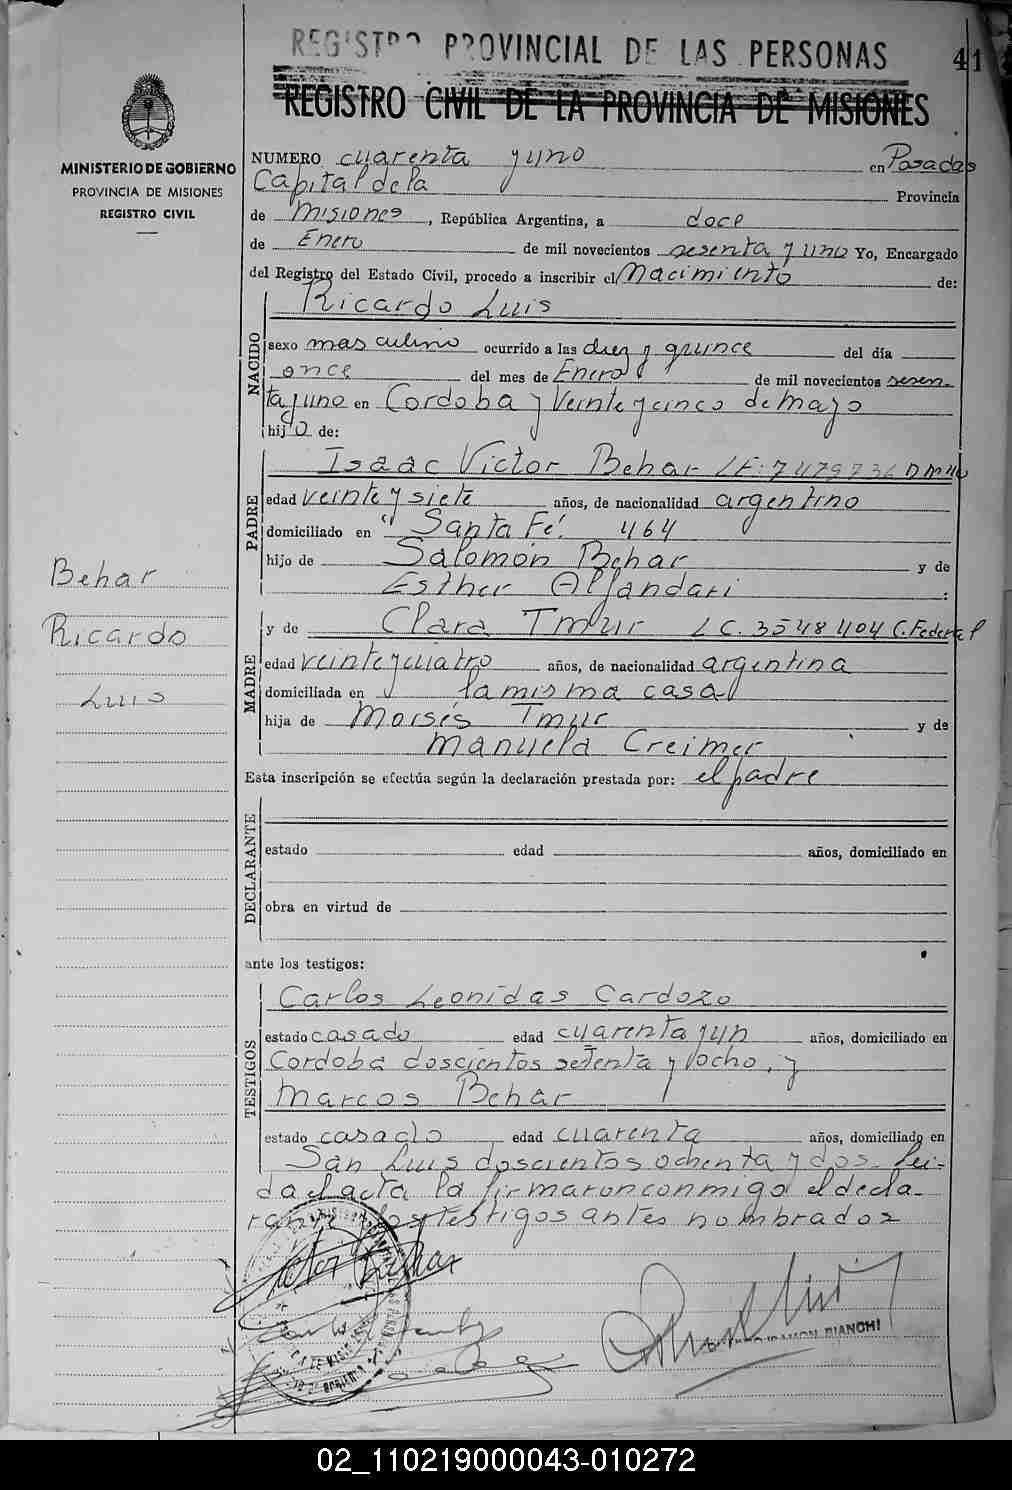 REGISTRO PROVINCIAL DE LAS PERSONAS
41
REGISTRO CIVIL DE LA PROVINCIA DE MISIONES
MINISTERIO DE GOBIERNO
PROVINCIA DE MISIONES
REGISTRO CIVIL
NUMERO cuarenta y uno en Posadas
Capital de la Provincia
de Misiones, República Argentina, a doce
de Enero de mil novecientos sesenta y uno Yo, Encargado
del Registro del Estado Civil, procedo a inscribir el Nacimiento de:
NACIDO
Ricardo Luis
sexo masculino ocurrido a las diez y quince del día
once del mes de Enero de mil novecientos sesen-
ta y uno en Cordoba y Veinte y cinco de Mayo
hijo de:
PADRE
Isaac Victor Behar LE: 7479736 DM
edad veinte y siete años, de nacionalidad argentino
domiciliado en "Santa Fé" 464
hijo de Salomón Behar y de
Esther Aljandari :
Behar
Ricardo
Luis
MADRE
y de Clara Tmur LC. 3548404 C. Federal
edad veinte y cuatro años, de nacionalidad argentina
domiciliada en la misma casa
hija de Moisés Tmur y de
Manuela Creimer
Esta inscripción se efectúa según la declaración prestada por: el padre
DECLARANTE
estado edad años, domiciliado en
obra en virtud de
ante los testigos:
TESTIGOS
Carlos Leonidas Cardozo
estado casado edad cuarenta y un años, domiciliado en
Cordoba doscientos setenta y ocho, y
Marcos Behar
estado casado edad cuarenta años, domiciliado en
San Luis doscientos ochenta y dos. Lei-
da el acta la firmaron conmigo el decla-
rante y los testigos antes nombrados
RAMON BIANCHI
02_110219000043-010272